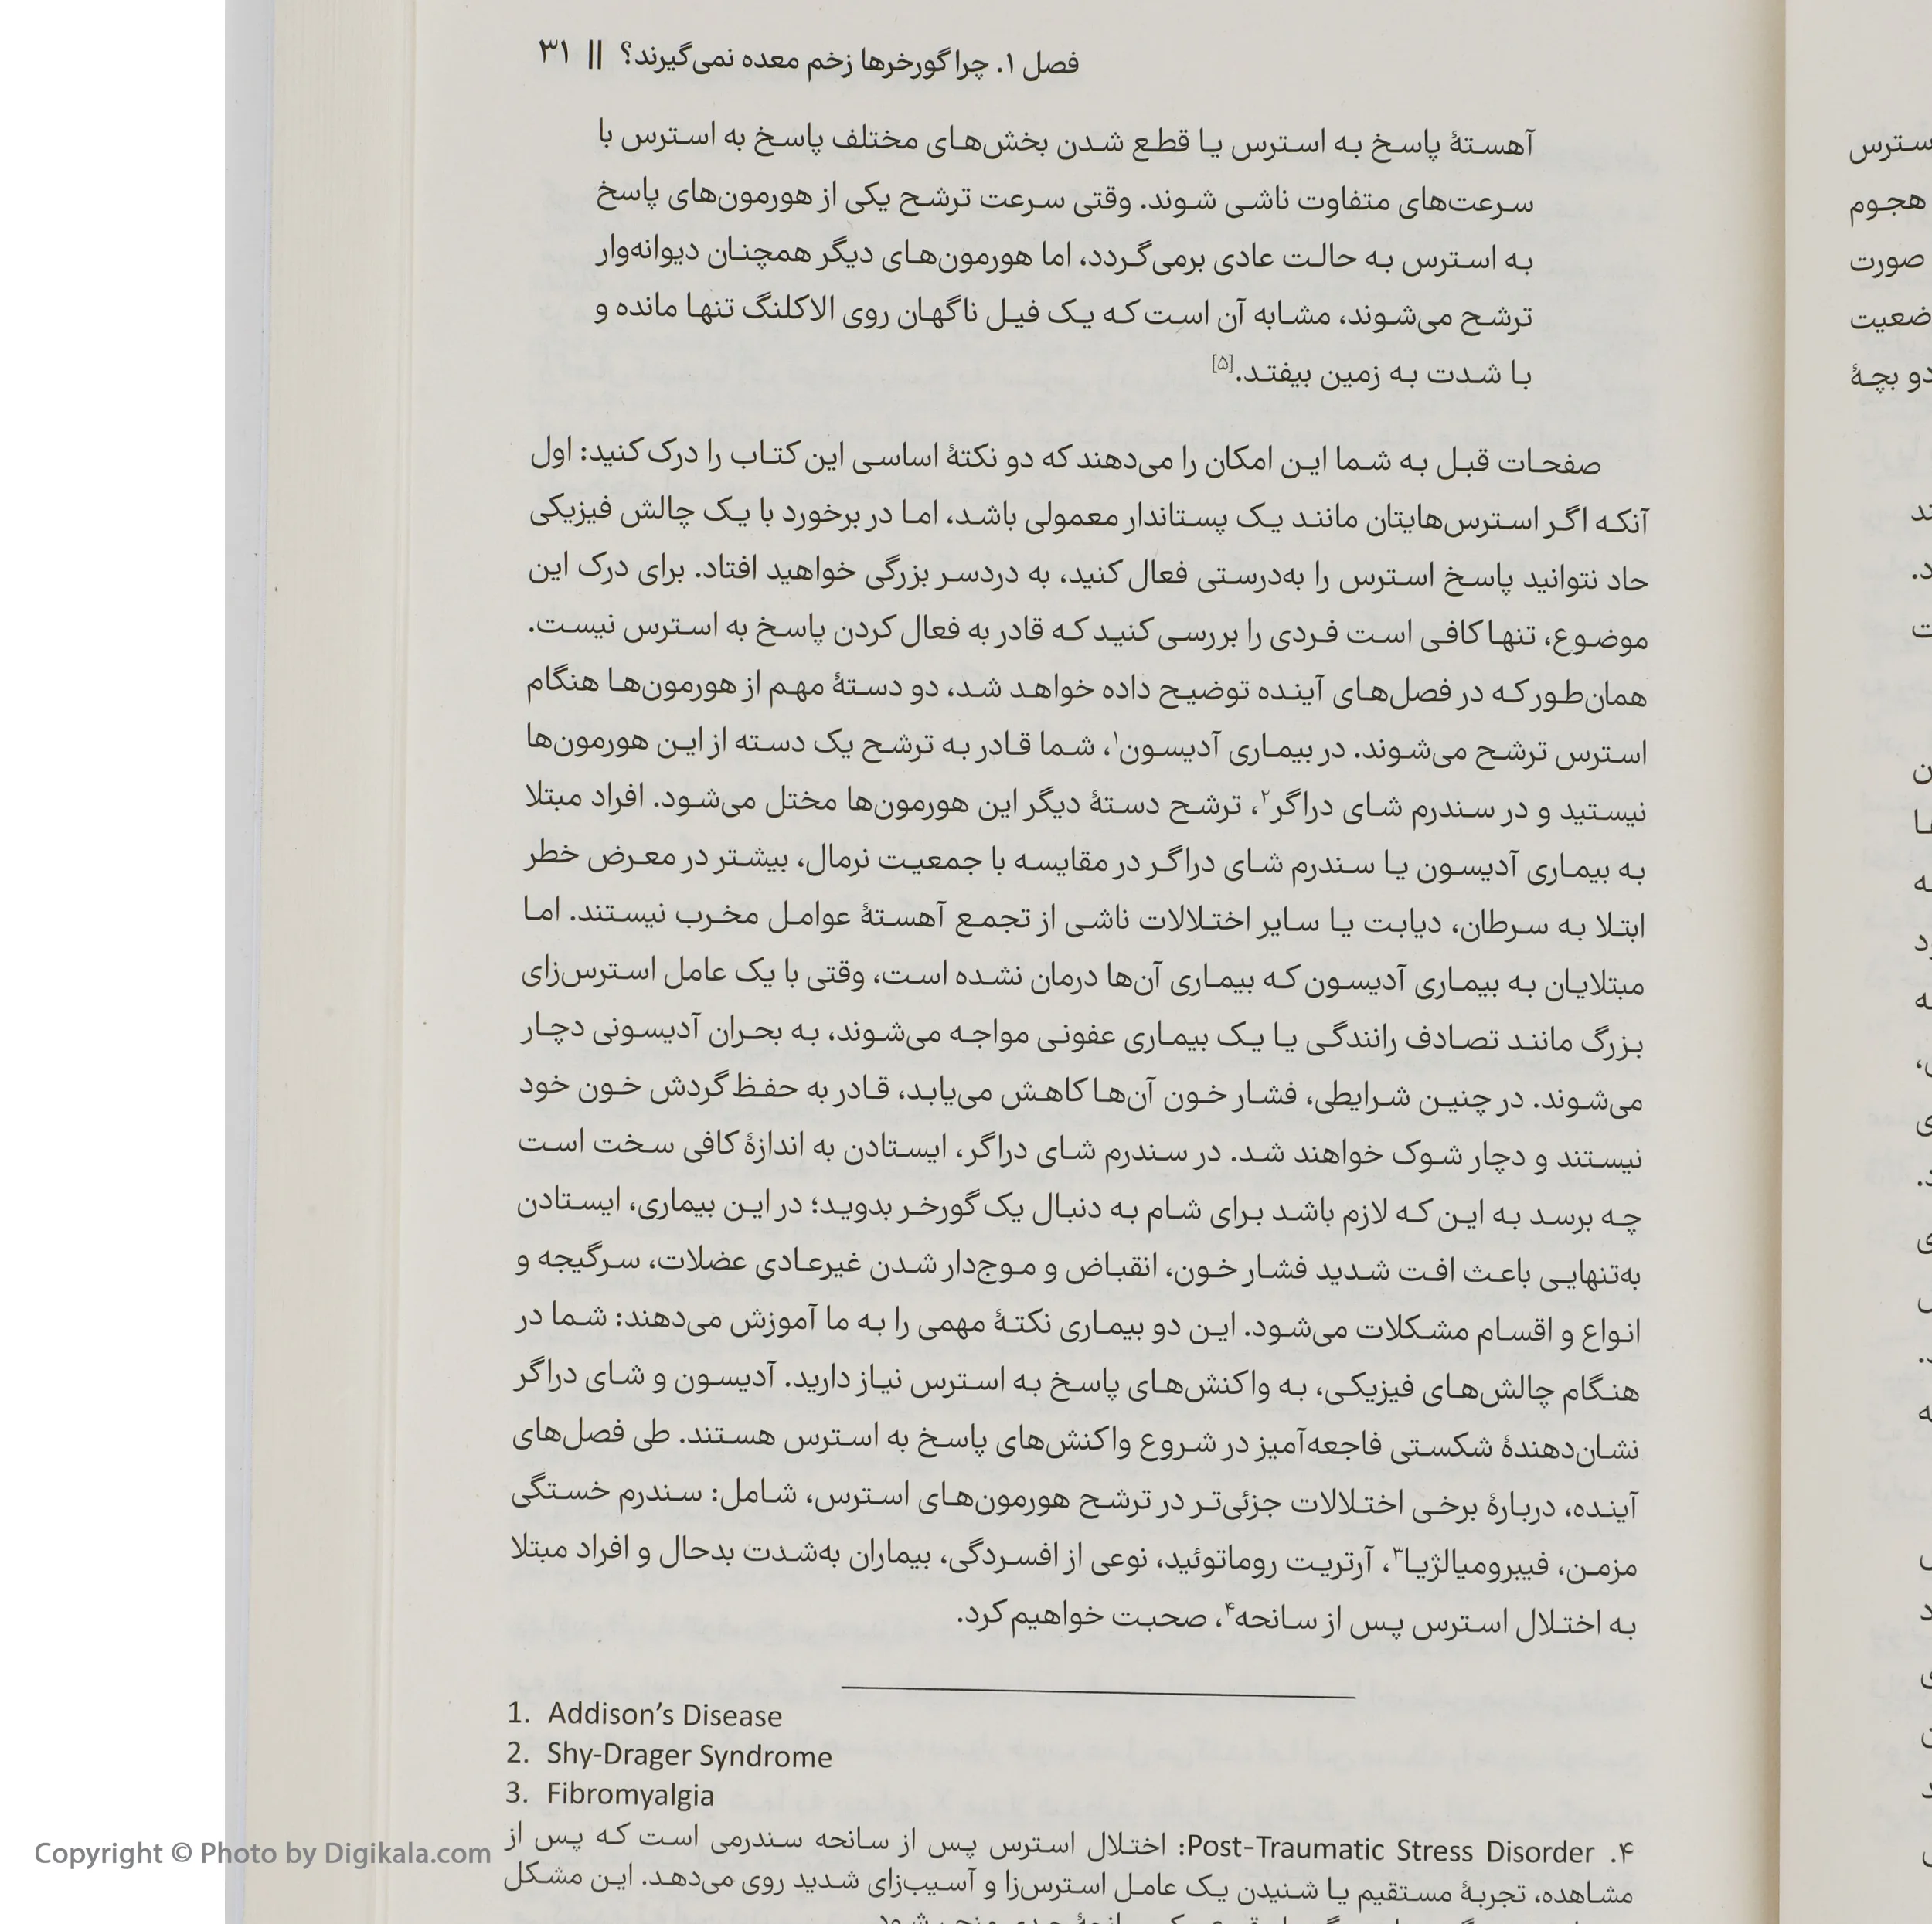 فصل ۱. چرا گورخرها زخم معده نمی‌گیرند؟ || ۳۱
آهستهٔ پاسخ به استرس یا قطع شدن بخش‌های مختلف پاسخ به استرس با
سرعت‌های متفاوت ناشی شوند. وقتی سرعت ترشح یکی از هورمون‌های پاسخ
به استرس به حالت عادی برمی‌گردد، اما هورمون‌های دیگر همچنان دیوانه‌وار
ترشح می‌شوند، مشابه آن است که یک فیل ناگهان روی الاکلنگ تنها مانده و
با شدت به زمین بیفتد.[۵]
صفحات قبل به شما این امکان را می‌دهند که دو نکتهٔ اساسی این کتاب را درک کنید: اول
آنکه اگر استرس‌هایتان مانند یک پستاندار معمولی باشد، اما در برخورد با یک چالش فیزیکی
حاد نتوانید پاسخ استرس را به‌درستی فعال کنید، به دردسر بزرگی خواهید افتاد. برای درک این
موضوع، تنها کافی است فردی را بررسی کنید که قادر به فعال کردن پاسخ به استرس نیست.
همان‌طور که در فصل‌های آینده توضیح داده خواهد شد، دو دستهٔ مهم از هورمون‌ها هنگام
استرس ترشح می‌شوند. در بیماری آدیسون۱، شما قادر به ترشح یک دسته از این هورمون‌ها
نیستید و در سندرم شای دراگر۲، ترشح دستهٔ دیگر این هورمون‌ها مختل می‌شود. افراد مبتلا
به بیماری آدیسون یا سندرم شای دراگر در مقایسه با جمعیت نرمال، بیشتر در معرض خطر
ابتلا به سرطان، دیابت یا سایر اختلالات ناشی از تجمع آهستهٔ عوامل مخرب نیستند. اما
مبتلایان به بیماری آدیسون که بیماری آن‌ها درمان نشده است، وقتی با یک عامل استرس‌زای
بزرگ مانند تصادف رانندگی یا یک بیماری عفونی مواجه می‌شوند، به بحران آدیسونی دچار
می‌شوند. در چنین شرایطی، فشار خون آن‌ها کاهش می‌یابد، قادر به حفظ گردش خون خود
نیستند و دچار شوک خواهند شد. در سندرم شای دراگر، ایستادن به اندازهٔ کافی سخت است
چه برسد به این که لازم باشد برای شام به دنبال یک گورخر بدوید؛ در این بیماری، ایستادن
به‌تنهایی باعث افت شدید فشار خون، انقباض و موج‌دار شدن غیرعادی عضلات، سرگیجه و
انواع و اقسام مشکلات می‌شود. این دو بیماری نکتهٔ مهمی را به ما آموزش می‌دهند: شما در
هنگام چالش‌های فیزیکی، به واکنش‌های پاسخ به استرس نیاز دارید. آدیسون و شای دراگر
نشان‌دهندهٔ شکستی فاجعه‌آمیز در شروع واکنش‌های پاسخ به استرس هستند. طی فصل‌های
آینده، دربارهٔ برخی اختلالات جزئی‌تر در ترشح هورمون‌های استرس، شامل: سندرم خستگی
مزمن، فیبرومیالژیا۳، آرتریت روماتوئید، نوعی از افسردگی، بیماران به‌شدت بدحال و افراد مبتلا
به اختلال استرس پس از سانحه۴، صحبت خواهیم کرد.
1. Addison’s Disease
2. Shy-Drager Syndrome
3. Fibromyalgia
۴. Post-Traumatic Stress Disorder: اختلال استرس پس از سانحه سندرمی است که پس از
مشاهده، تجربهٔ مستقیم یا شنیدن یک عامل استرس‌زا و آسیب‌زای شدید روی می‌دهد. این مشکل
Copyright © Photo by Digikala.com
استرس
هجوم
صورت
دو بچهٔ